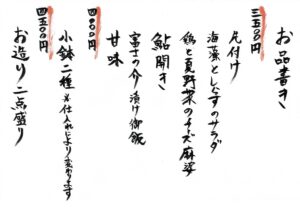 お品書き
三五〇〇円
先付け
海藻としらすのサラダ
鶏と夏野菜のチーズ麻婆
鮎開き
富士の介漬け御飯
甘味
四〇〇〇円
小鉢二種 ※仕入れにより変わります
四五〇〇円
お造り二点盛り